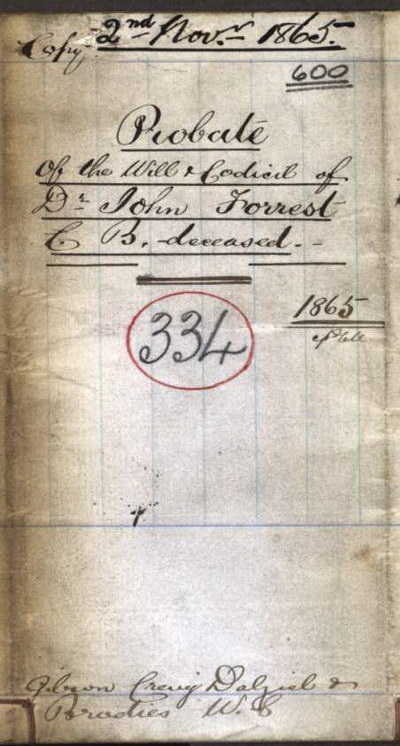 Copy 2nd Novr. 1865.
600
Probate
Of the Will & Codicil of
Dr. John Forrest
C B. deceased. -
1865
334
Gibson Craig Dalziel &
Brodies W. S